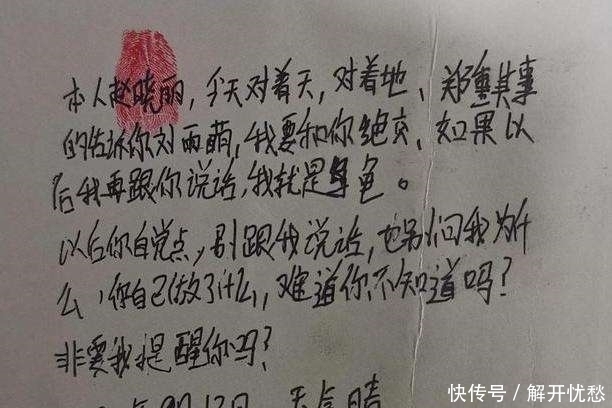 本人赵晓丽，今天对着天，对着地，郑重其事
的告诉你刘雨萌，我要和你绝交，如果以
后我再跟你说话，我就是龟。
以后你自觉点，别跟我说话，也别问我为什
么，你自己做了什么，难道你不知道吗？
非要我提醒你吗？
月12日 天气晴
快传号／解开忧愁